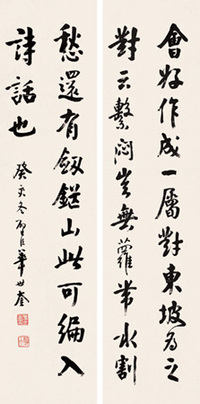 會好作成一屬對東坡為之
對云繫悶豈無蘿帶水割
愁還有劒鋩山此可編入
詩話也
癸亥冬璧臣華世奎